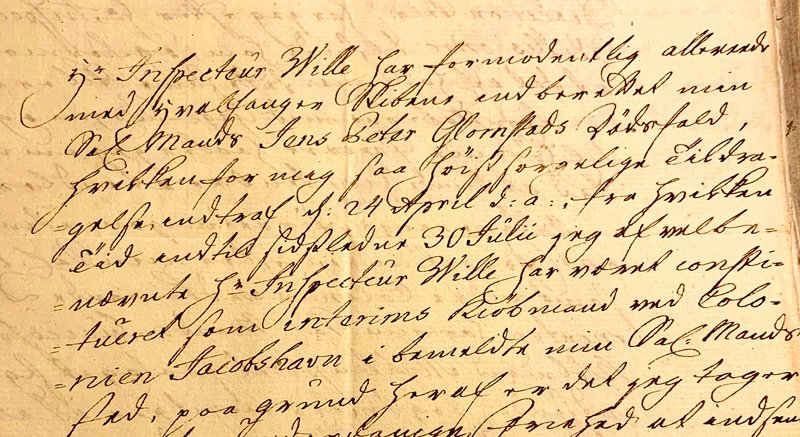 Hr Inspecteur Wille har formodentlig allereede
med Hvalfanger Skibene indberettet min
Sal. Mands Jens Peter Glomstads Dødsfald,
hvilken for mig saa høist sørgelige Tildra-
=gelse, indtraf d: 24 April d: a:, fra hvilken
Tid indtil sidstledne 30 Julii jeg af velbe-
=nævnte Hr Inspecteur Wille har været consti-
=tueret som interims Kiøbmand ved Colo-
=nien Jacobshavn i bemeldte min Sal. Mands
sted, paa grund heraf er det jeg tager
Friehed at indsen